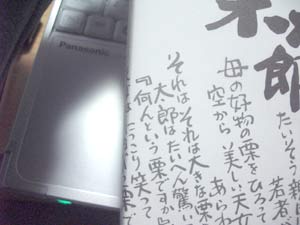 Panasonic
郎
たいそう親
若者が
母の好物の栗をひろって
空から美しい天女
あらわ
それはそれは大きな栗
太郎はたいへん驚い
『何んという栗ですか』
にっこり笑って
栗で